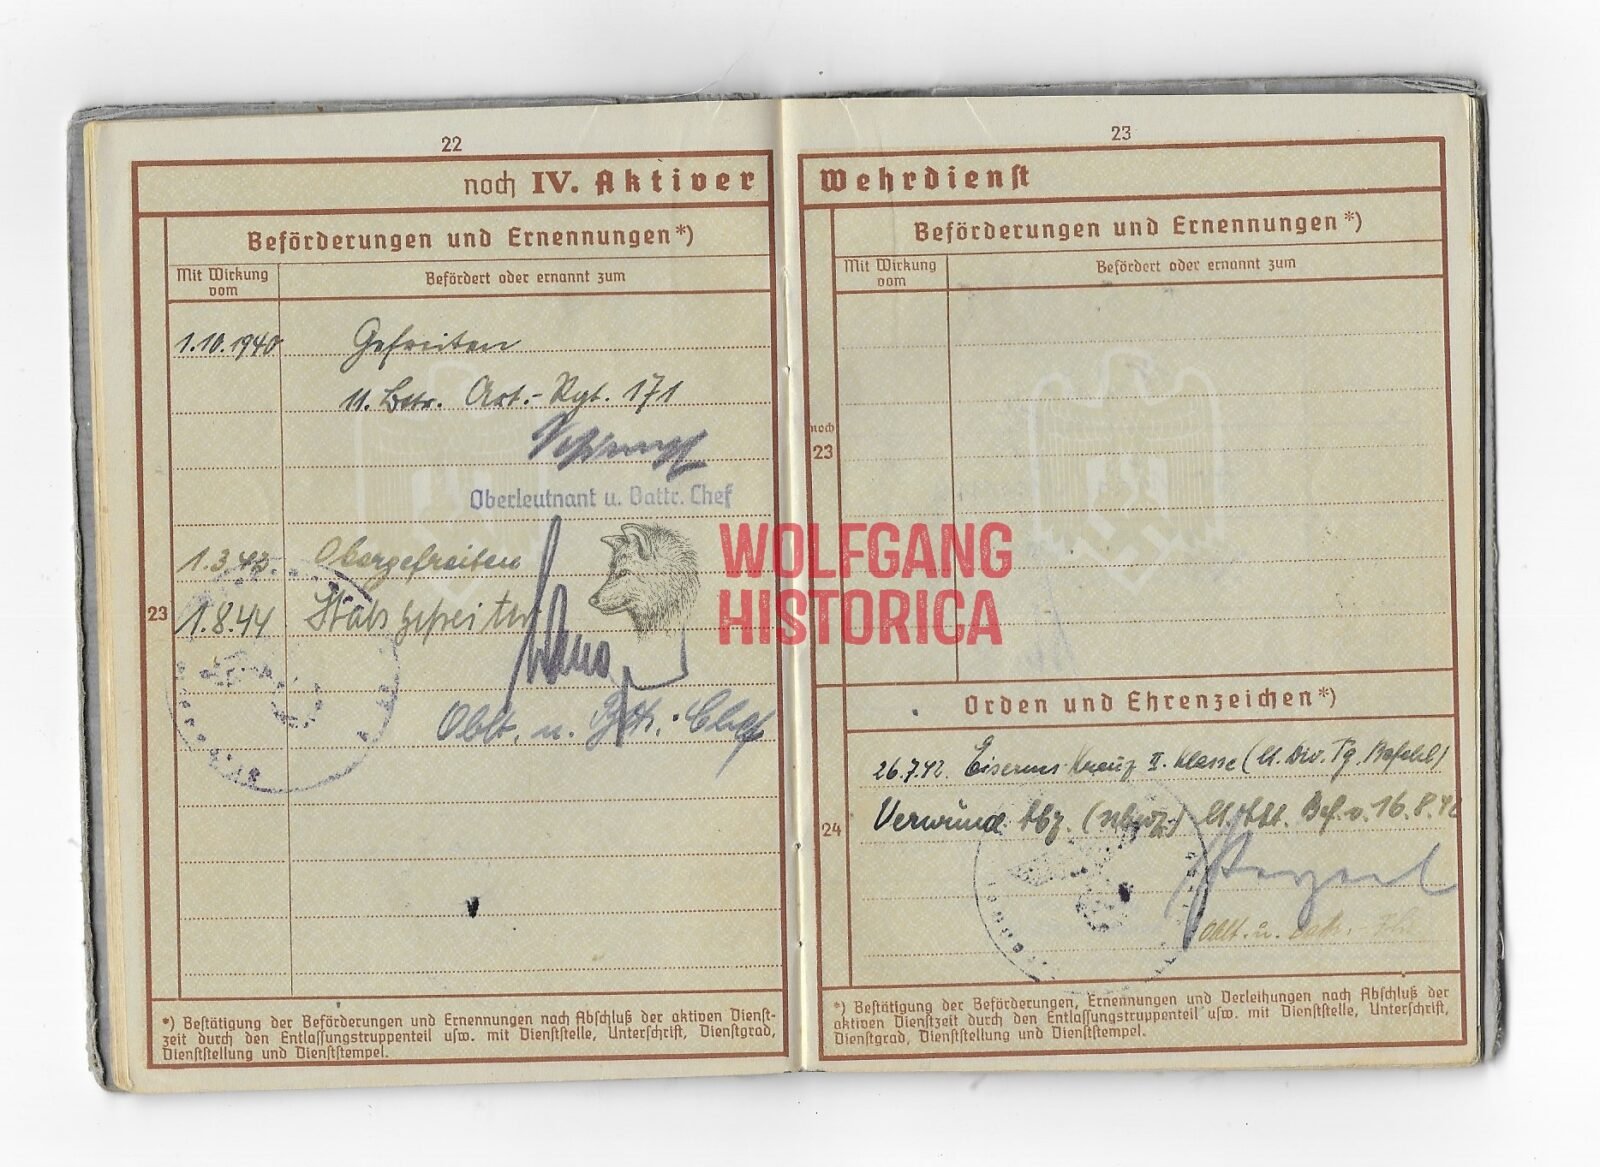 22
noch IV. Aktiver
Beförderungen und Ernennungen *)
Mit Wirkung
vom
Befördert oder ernannt zum
1.10.1940 Gefreiten
11. Bttr. Art.-Rgt. 171
Oberleutnant u. Battr. Chef
1.3.42. Obergefreiten
23
1.8.44 Stabsgefreiter
Oblt. u. Chef
*) Bestätigung der Beförderungen und Ernennungen nach Abschluß der aktiven Dienst-
zeit durch den Entlassungstruppenteil usw. mit Dienststelle, Unterschrift, Dienstgrad,
Dienststellung und Dienststempel.
WOLFGANG
HISTORICA
23
Wehrdienst
Beförderungen und Ernennungen *)
Mit Wirkung
vom
Befördert oder ernannt zum
noch
23
Orden und Ehrenzeichen *)
26.7.42. Eisernes Kreuz II. Klasse (lt. Div. Tg. Befehl)
24
Verwund. Abz. (schwz.) lt. Abt. Bef. v. 16.8.42
Oblt. u.
*) Bestätigung der Beförderungen, Ernennungen und Verleihungen nach Abschluß der
aktiven Dienstzeit durch den Entlassungstruppenteil usw. mit Dienststelle, Unterschrift,
Dienstgrad, Dienststellung und Dienststempel.